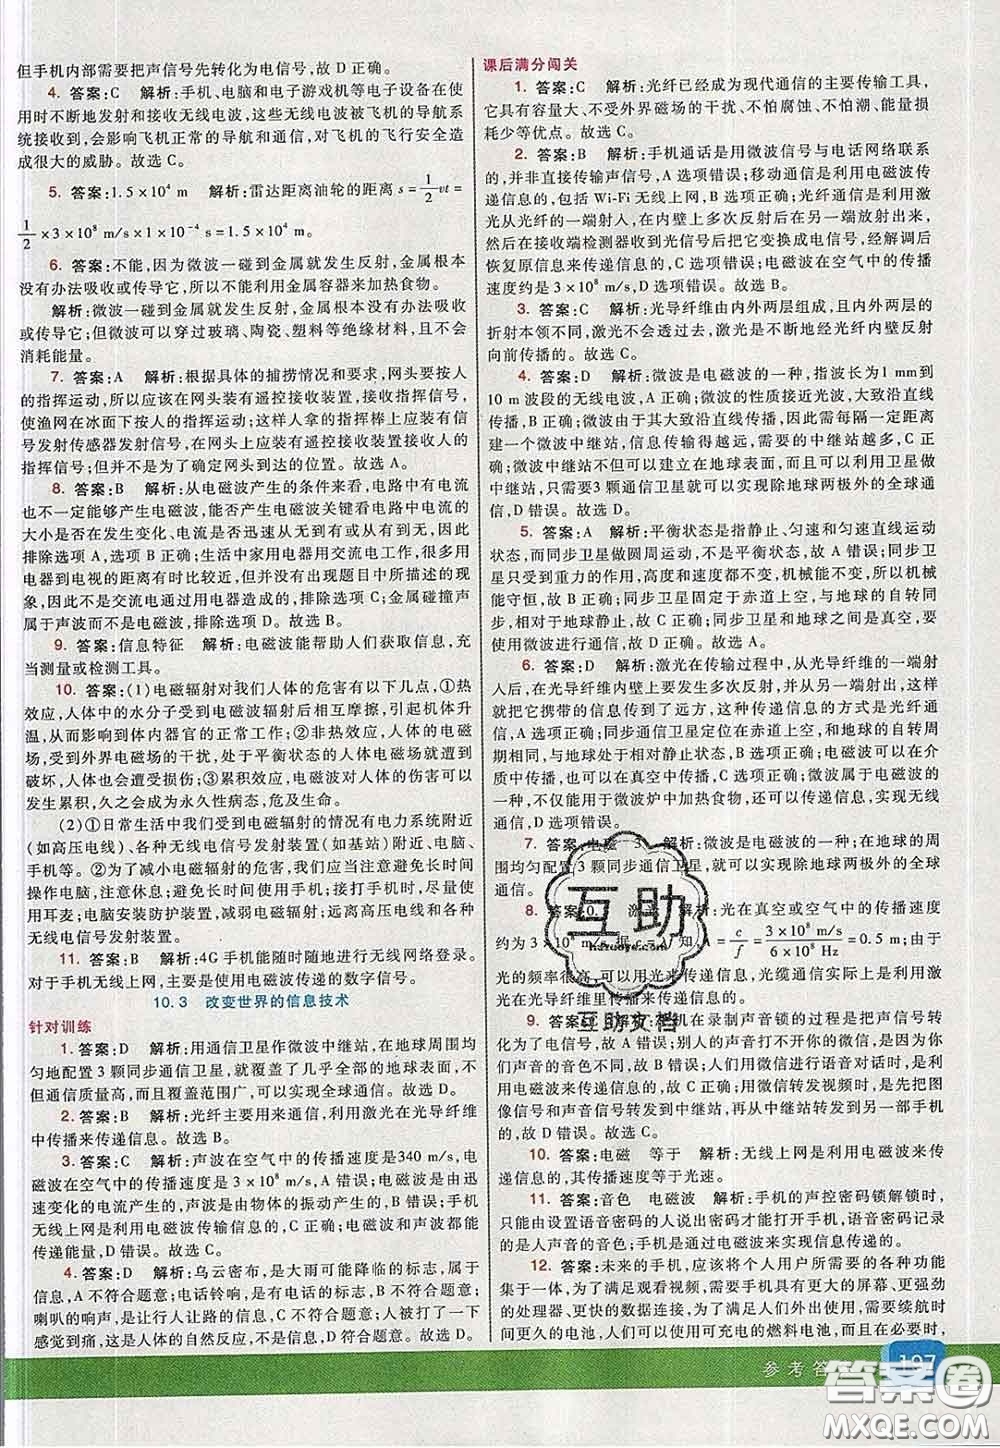 但手机内部需要把声信号先转化为电信号,故 D 正确。
4. 答案:C 解析:手机、电脑和电子游戏机等电子设备在使
用时不断地发射和接收无线电波,这些无线电波被飞机的导航
系统接收到,会影响飞机正常的导航和通信,对飞机的飞行安全造
成很大的威胁。故选 C。
5. 答案:1.5×10⁴ m 解析:雷达距离油轮的距离 s=1/2vt=
1/2×3×10⁸ m/s×1×10⁻⁴ s=1.5×10⁴ m。
6. 答案:不能,因为微波一碰到金属就发生反射,金属根本
没有办法吸收或传导它,所以不能使用金属容器来加热食物。
解析:微波一碰到金属就发生反射,金属根本没有办法吸收
或传导它;但微波可以穿过玻璃、陶瓷、塑料等绝缘材料,且不会
消耗能量。
7. 答案:A 解析:根据具体的捕捞情况和要求,网头要按人
的指挥运动,所以应该在网头装有遥控接收装置,接收指挥信号,
使渔网在冰面下按人的指挥运动;这样人拿的指挥棒上应装有信
号发射传感器发射信号,在网头上应装有遥控接收装置接收人的
指挥信号;但并不是为了确定网头到达的位置。故选 A。
8. 答案:B 解析:从电磁波产生的条件来看,电路中有电流
也不一定能够产生电磁波,能否产生电磁波关键看电路中电流的
大小是否在发生变化、电流是否迅速从无到有或从有到无,因此
排除选项 A,选项 B 正确;生活中家用电器使用交流电工作,很多用
电器到电视的距离有时比较近,但却没有出现题目中所描述的现
象,因此不是交流电通过用电器造成的,排除选项 C;金属碰撞声
属于声波而不是电磁波,排除选项 D。故选 B。
9. 答案:信息特征 解析:电磁波能帮助人们获取信息,充
当测量或检测工具。
10. 答案:(1)电磁辐射对我们人体的危害有以下几点,①热
效应,人体中的水分子受到电磁波辐射后相互摩擦,引起机体升
温,从而影响到体内器官的正常工作;②非热效应,人体的电磁场
受到外界电磁场的干扰,处于平衡状态的人体电磁场就遭到
破坏,人体也会遭受损伤;③累积效应,电磁波对人体的危害可能
发生累积,久之会成为永久性病态,危及生命。
(2)①日常生活中我们受到电磁辐射的情况有电力系统附近
(如高压电线)、各种无线电信号发射装置(如基站)附近、电脑、
手机等。②为了减小电磁辐射的危害,我们应当避免长时间
操作电脑,注意休息;避免长时间使用手机打电话,尽可能使
用耳麦;电脑安装防护装置,减弱电磁辐射;远离高压电线和各种
无线电信号发射装置。
11. 答案:B 解析:4G 手机能随时随地进行无线网络登录。
对于手机无线上网,主要是使用电磁波传递的数字信号。
10.3 改变世界的信息技术
针对训练
1. 答案:D 解析:用通信卫星作微波中继站,在地球周围均
匀地配置 3 颗同步通信卫星,就覆盖了几乎全部的地球表面,不
但通信质量高,而且覆盖范围广,可以实现全球通信。故选 D。
2. 答案:B 解析:光纤主要用来通信,利用激光在光导纤维
中传播来传递信息。故选 B。
3. 答案:C 解析:声波在空气中的传播速度是340 m/s,电
磁波在空气中的传播速度是 3×10⁸ m/s,A 错误;电磁波是由迅
速变化的电流产生的,声波是由物体的振动产生的,B 错误;手机
无线上网是利用电磁波传输信息的,C 正确;电磁波和声波都能
传递能量,D 错误。故选 C。
4. 答案:D 解析:乌云密布,是大雨可能降临的标志,属于
信息,A 不符合题意;电话铃响,是有电话的标志,B 不符合题意;
喇叭的响声,是让行人让路的信息,C 不符合题意;人被打了一下
感觉到痛,这是人体的自然反应,不是信息,D 符合题意。故选 D。
课后满分闯关
1. 答案:C 解析:光纤已经成为现代通信的主要传输工具,
它具有容量大、不受外界磁场的干扰、不怕腐蚀、不怕潮、能量损
耗少等优点。故选 C。
2. 答案:B 解析:手机通话是用微波信号与电话网络联系
的,并非直接传输声信号,A 选项错误;移动通信是利用电磁波传
递信息的,包括 Wi-Fi 无线上网,B 选项正确;光纤通信是利用激
光从光纤的一端射入,在内壁上多次反射后在另一端射出来,
然后在接收端检测器收到光信号后把它变换成电信号,经解调后
恢复原信息来传递信息的,C 选项错误;电磁波在空气中的传播
速度约是 3×10⁸ m/s,D 选项错误。故选 B。
3. 答案:C 解析:光导纤维由内外两层组成,且内外两层的
折射本领不同,激光不会透过去,激光是不断地经光纤内壁反射
向前传播的。故选 C。
4. 答案:D 解析:微波是电磁波的一种,指波长为 1 mm到
10 m 波段的无线电波,A 正确;微波的性质接近光波,大致沿直线
传播,B 正确;微波由于其大致沿直线传播,需每隔一定距离
建一个微波中继站,信息传输得越远,需要的中继站越多,C 正
确;微波中继站不但可以建立在地球表面,而且可以利用卫星做
中继站,只需要3 颗通信卫星就可以实现除地球两极外的全球通
信,D 错误。故选 D。
5. 答案:A 解析:平衡状态是指静止、匀速和匀速直线运动
状态,而同步卫星做圆周运动,不是平衡状态,故 A 错误;同步卫
星的质量不变,高度和速度都不变,动能和势能都不变,则机械
能守恒,故 B 正确;同步卫星固定于赤道上空,与地球的自转同
步,相对于地球静止,故 C 正确;卫星和地球之间是真空,要
使用微波进行通信,故 D 正确。故选 A。
6. 答案:D 解析:激光在传输过程中,从光导纤维的一端射
入后,在光导纤维内壁上要发生多次反射,从另一端射出,这样
就把它携带的信息传到了远方,这种通信方式就是光纤通
信,A 选项正确;同步通信卫星定位在赤道上空,和地球的自转周期
相同,与地球处于相对静止状态,B 选项正确;电磁波可以在介
质中传播,也可以在真空中传播,C 选项正确;微波属于电磁波的
一种,不仅应用于微波炉中加热食物,还可以传递信息,实现无线
通信,D 选项错误。
7. 答案:电磁 3 解析:微波是电磁波的一种;在地球的周
围均匀配置 3 颗同步通信卫星,就可以实现除地球两极外的全球
通信。
8. 答案:0. 激光 解析:光在真空或空气中的传播速度
约为 3×10⁸ m/s,据 知,λ=c/f=3×10⁸ m/s/6×10⁸ Hz=0.5 m;由于
光的频率很高,可以用来传递信息,光缆通信实际上是利用激
光在光导纤维里传播来传递信息的。
9. 答案: 解析: 机在录制声音锁的过程是把声信号转
化为电信号,A 正确;别人的声音打不开你的微信,是因为你
们的声音的音色不同,B 错误;人们用微信进行语音对话时,是利
用电磁波来传递信息的,C 正确;用微信转发视频时,是把图
像信号和声音信号转发到中继站,再由中继站转发到另一部手机
的,故 D 错误。故选 C。
10. 答案:电磁 等于 解析:无线上网是利用电磁波传递信
息的,其传播速度等于光速。
11. 答案:音色 电磁波 解析:手机的声控密码锁解锁时,
只能由设置语音密码的人说出密码才能打开手机,语音密码记录
的是人声音的音色;手机是通过电磁波来实现信息传递的。
12. 答案:未来的手机,应该将个人用户所需要的各种功能
集于一体。为了满足观看视频,需要手机具有更大的屏幕、更强劲
的处理器、更快的数据连接、为了满足人们外出使用,需要待机
时间更久的电池,如可以使用可充电的燃料电池,而且在必要时,
互助
互助文档
参考答 197
答案圈
MXQE.COM